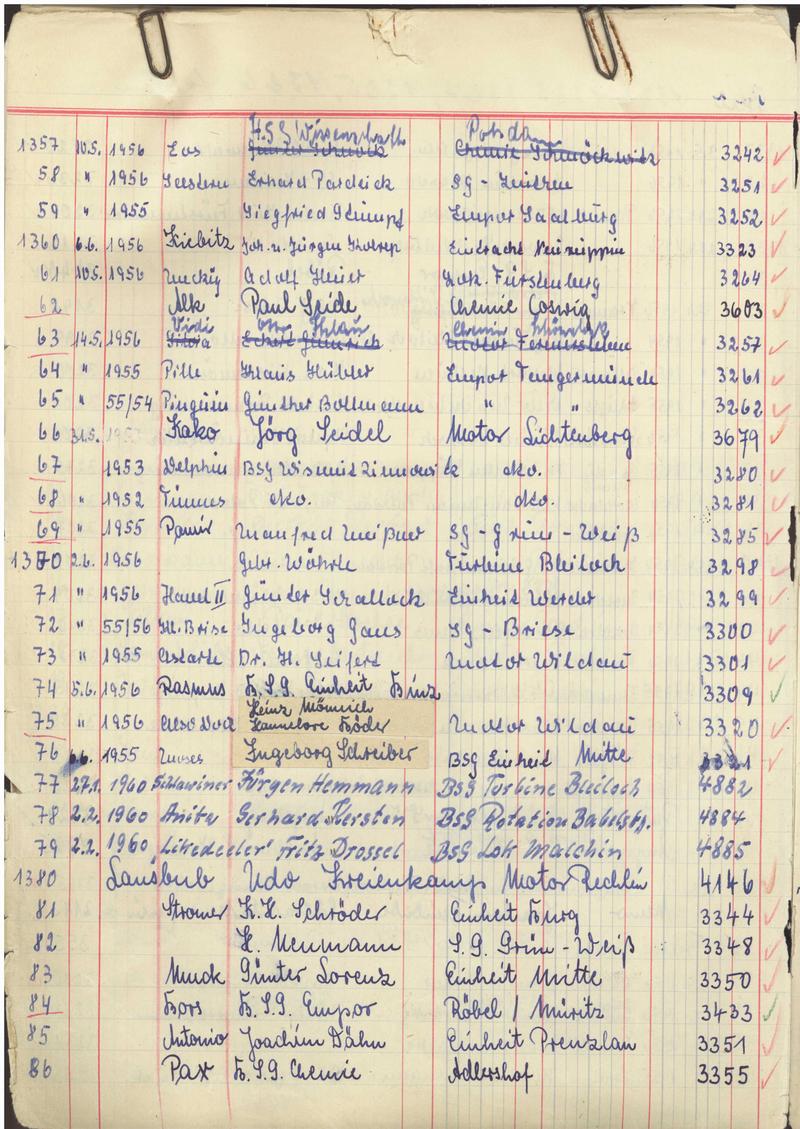 H.S.G Wissenschaft Potsdam
1357 10.5. 1956 Eos Günter Schmock Chemie Schmöckwitz 3242
58 " 1956 Seestern Erhard Pardeick SG - Zeuthen 3251
59 " 1955 Siegfried Stumpf Empor Saalburg 3252
1360 6.6. 1956 Kiebitz Joh. u. Jürgen Eintracht Neuruppin 3323
61 10.5. 1956 Adolf Lok. Fürstenberg 3264
62 Alk Paul Seide Chemie Coswig 3603
Chemie
63 14.5. 1956 Motor Fermersleben 3257
64 " 1955 Pille Klaus Hübler Empor Tangermünde 3261
65 " 55/54 Pinguin Günther Bollmann " " 3262
66 31.5. Kako Jörg Seidel Motor Lichtenberg 3679
67 1953 Delphin BSG Wismut Zinnowitz dto. 3280
68 " 1952 Timmes dto. dto. 3281
69 " 1955 Pamir Manfred Meißner SG - Grün - Weiß 3285
1370 2.6. 1956 Gebr. Wöhrle Turbine Bleiloch 3298
71 " 1956 Havel II Günter Schallock Einheit Werder 3299
72 " 55/56 Kl. Brise Ingeborg Gans SG - Briese 3300
73 " 1955 Astarte Dr. H. Seifert Motor Wildau 3301
74 5.6. 1956 Rasmus B.S.G. Einheit Binz 3309
Heinz Mönnich
75 " 1956 Hannelore Böder Motor Wildau 3320
76 6.6. 1955 Moses Ingeborg Schreiber BSG Einheit Mitte 3321
77 27.1. 1960 Schlawiner Jürgen Hemmann BSG Turbine Bleiloch 4882
78 2.2. 1960 Anita Gerhard Kersten BSG Rotation Babelsbg. 4884
79 2.2. 1960 Likedeeler Fritz Drossel BSG Lok Malchin 4885
1380 Lausbub Udo Kreienkamp Motor Rechlin 4146
81 Stromer K.H. Schröder Einheit Burg 3344
82 H. Neumann S.G. Grün - Weiß 3348
83 Muck Günter Lorenz Einheit Mitte 3350
84 Bors B.S.G. Empor Röbel / Müritz 3433
85 Antonio Joachim Dähn Einheit Prenzlau 3351
86 Pax B.S.G. Chemie Adlershof 3355